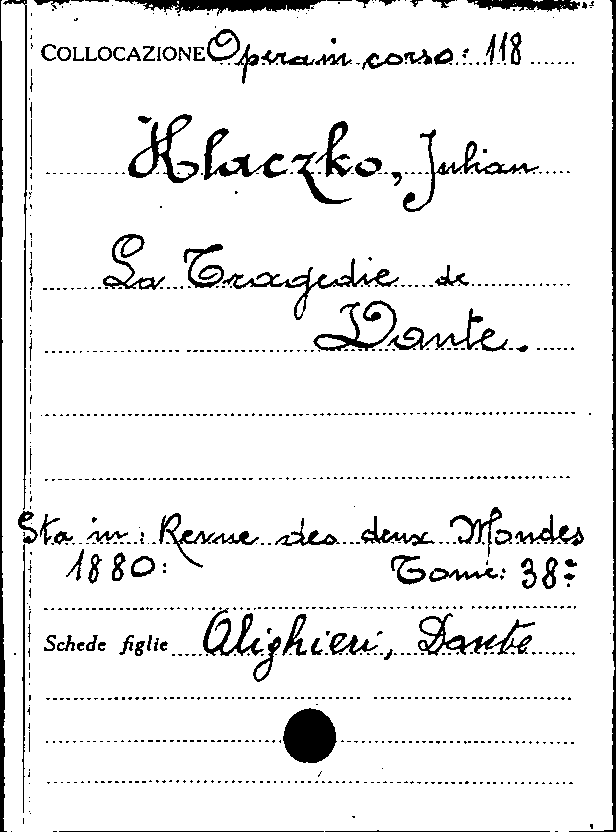 COLLOCAZIONE Opera in corso: 118
Klaczko, Julian
La Tragedie de
Dante.
Sta in: Revue des deux Mondes
1880: Tome: 38:
Schede figlie Alighieri, Dante